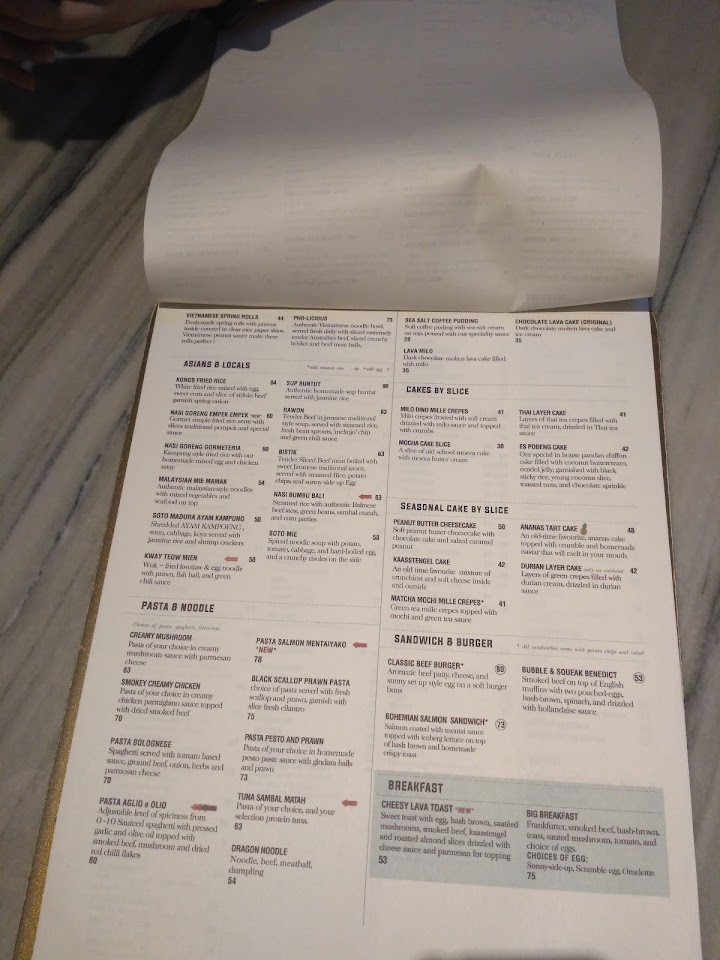 VIETNAMESE SPRING ROLLS 44
Fresh-made spring rolls with prawns
inside covered in clear rice paper skins.
Vietnamese peanut sauce make these
rolls perfect !
PHO-LICIOUS 73
Authentic Vietnamese noodle bowl,
served fresh daily with sliced extremely
tender Australian beef, sliced crunchy
brisket and beef meat balls.
ASIANS & LOCALS
KONGS FRIED RICE 64
White fried rice mixed with egg,
sweet corn and slice of sirloin beef
garnish spring onion
NASI GORENG EMPEK EMPEK 60
Gourmet simple fried rice serve with
slices traditional pempek and special
sauce
NASI GORENG GORMETERIA 60
Kampung style fried rice with our
homemade mixed egg and chicken
satay
MALAYSIAN MIE MAMAK 54
Authentic malaysian-style noodles
with mixed vegetables and
seafood on top
SOTO MADURA AYAM KAMPUNG 50
Shredded AYAM KAMPOENG ,
soun, cabbage, koya served with
Jasmine rice and shrimp crackers
KWAY TEOW MIEN 58
Wok - fried kwetiau & egg noodle
with prawn, fish ball, and green
chili sauce
SUP BUNTUT 90
Authentic homemade sup buntut
served with Jasmine rice
RAWON 63
Tender Beef in javanese traditional
style soup, served with steamed rice,
fresh bean sprouts, 'melinjo' chip
and green chili sauce
BISTIK 63
Tender Sliced Beef meat boiled with
sweet Javanese traditional sauce,
served with steamed Rice, potato
chips, and sunny side up Egg
NASI BUMBU BALI 63
Steamed rice with authentic Balinese
beef stew, green beans, sambal matah,
and corn patties
SOTO MIE 58
Spiced noodle soup with potato,
tomato, cabbage, and hard-boiled egg,
and a crunchy risoles on the side
PASTA & NOODLE
Choices of pasta: spaghetti, fettuccini
CREAMY MUSHROOM
Pasta of your choice in creamy
mushroom sauce with parmesan
cheese
63
SMOKEY CREAMY CHICKEN
Pasta of your choice in creamy
chicken parmigiano sauce topped
with dried smoked beef
70
PASTA BOLOGNESE
Spaghetti served with tomato based
sauce, ground beef, onion, herbs and
parmesan cheese
70
PASTA AGLIO e OLIO
Adjustable level of spiciness from
0 -10 Sauteed spaghetti with pressed
garlic and olive oil topped with
smoked beef, mushroom and dried
red chilli flakes
60
PASTA SALMON MENTAIYAKO
*NEW*
78
BLACK SCALLOP PRAWN PASTA
choice of pasta served with fresh
scallop and prawn, garnish with
slice fresh cilantro
75
PASTA PESTO AND PRAWN
Pasta of your choice in homemade
pesto paste sauce with gindara balls
and prawn
73
TUNA SAMBAL MATAH
Pasta of your choice, and your
selection protein tuna.
63
DRAGON NOODLE
Noodle, beef, meatball,
dumpling
54
SEA SALT COFFEE PUDDING
Soft coffee puding with sea salt cream
on top, poured with our speciality sauce
28
LAVA MILO
Dark chocolate molten lava cake filled
with milo
35
CHOCOLATE LAVA CAKE (ORIGINAL)
Dark chocolate molten lava cake and
ice cream
35
CAKES BY SLICE
MILO DINO MILLE CREPES 41
Milo crepes frosted with soft cream
drizzled with milo sauce and topped
with crumbs
MOCHA CAKE SLICE 38
A slice of old school mocca cake
with mocca butter cream
THAI LAYER CAKE 41
Layers of thai tea crepes filled with
thai tea cream, drizzled in Thai tea
sauce
ES PODENG CAKE 42
Our special in house pandan chiffon
cake filled with coconut buttercream,
cendol jelly, garnished with black
sticky rice, young coconut slice,
toasted nuts, and chocolate sprinkle
SEASONAL CAKE BY SLICE
PEANUT BUTTER CHEESECAKE 50
Soft peanut butter cheesecake with
chocolate cake and salted caramel
peanut
KAASSTENGEL CAKE 42
An old time favourite mixture of
crunchiest and soft cheese inside
and outside
MATCHA MOCHI MILLE CREPES* 41
Green tea mille crepes topped with
mochi and green tea sauce
ANANAS TART CAKE 48
An old-time favourite, ananas cake
topped with crumble and homemade
nastar that will melt in your mouth
DURIAN LAYER CAKE only on weekend 42
Layers of green crepes filled with
durian cream, drizzled in durian
sauce
SANDWICH & BURGER
* All sandwiches come with potato chips and salad
CLASSIC BEEF BURGER* 60
Aromatic beef patty, cheese, and
sunny set up style egg on a soft burger
buns
BOHEMIAN SALMON SANDWICH* 73
Salmon coated with mentai sauce
topped with iceberg lettuce on top
of hash brown and homemade
crispy toast
BUBBLE & SQUEAK BENEDICT 53
Smoked beef on top of English
muffins with two poached-eggs,
hash-brown, spinach, and drizzled
with hollandaise sauce
BREAKFAST
CHEESY LAVA TOAST *NEW*
Sweet toast with egg, hash brown, sautéed
mushrooms, smoked beef, kaasstengel
and roasted almond slices drizzled with
cheese sauce and parmesan for topping
53
BIG BREAKFAST
Frankfurter, smoked beef, hash-brown,
toast, sauted mushroom, tomato, and
choice of eggs.
CHOICES OF EGG:
Sunny-side-up, Scramble egg, Omelette
75